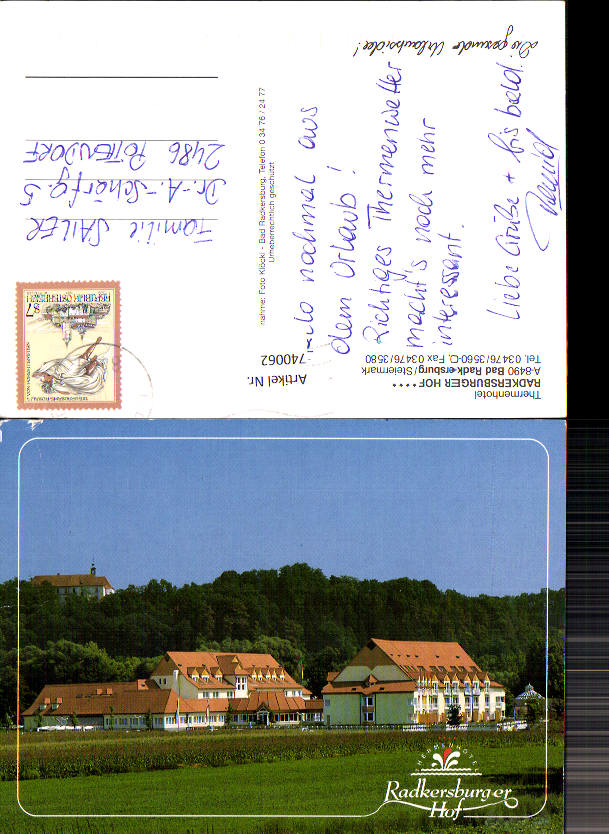 Thermenhotel
RADKERSBURGER HOF****
A-8490 Bad Radkersburg/Steiermark
Tel. 03476/3560-0, Fax 03476/3580
Die gesunde Urlaubsidee!
nochmal aus
dem Urlaub!
Richtiges Thermenwetter
macht's noch mehr
interessant.
Liebe Grüße + bis bald
Artikel Nr. 740062
nahme: Foto Klöckl - Bad Radkersburg, Telefon 0 34 76 / 24 77
Urheberrechtlich geschützt
REPUBLIK ÖSTERREICH
S7
Familie SAILER
Dr.-A.-Schärfg. 5
2486 POTTENDORF
THERMENHOTEL
Radkersburger
Hof